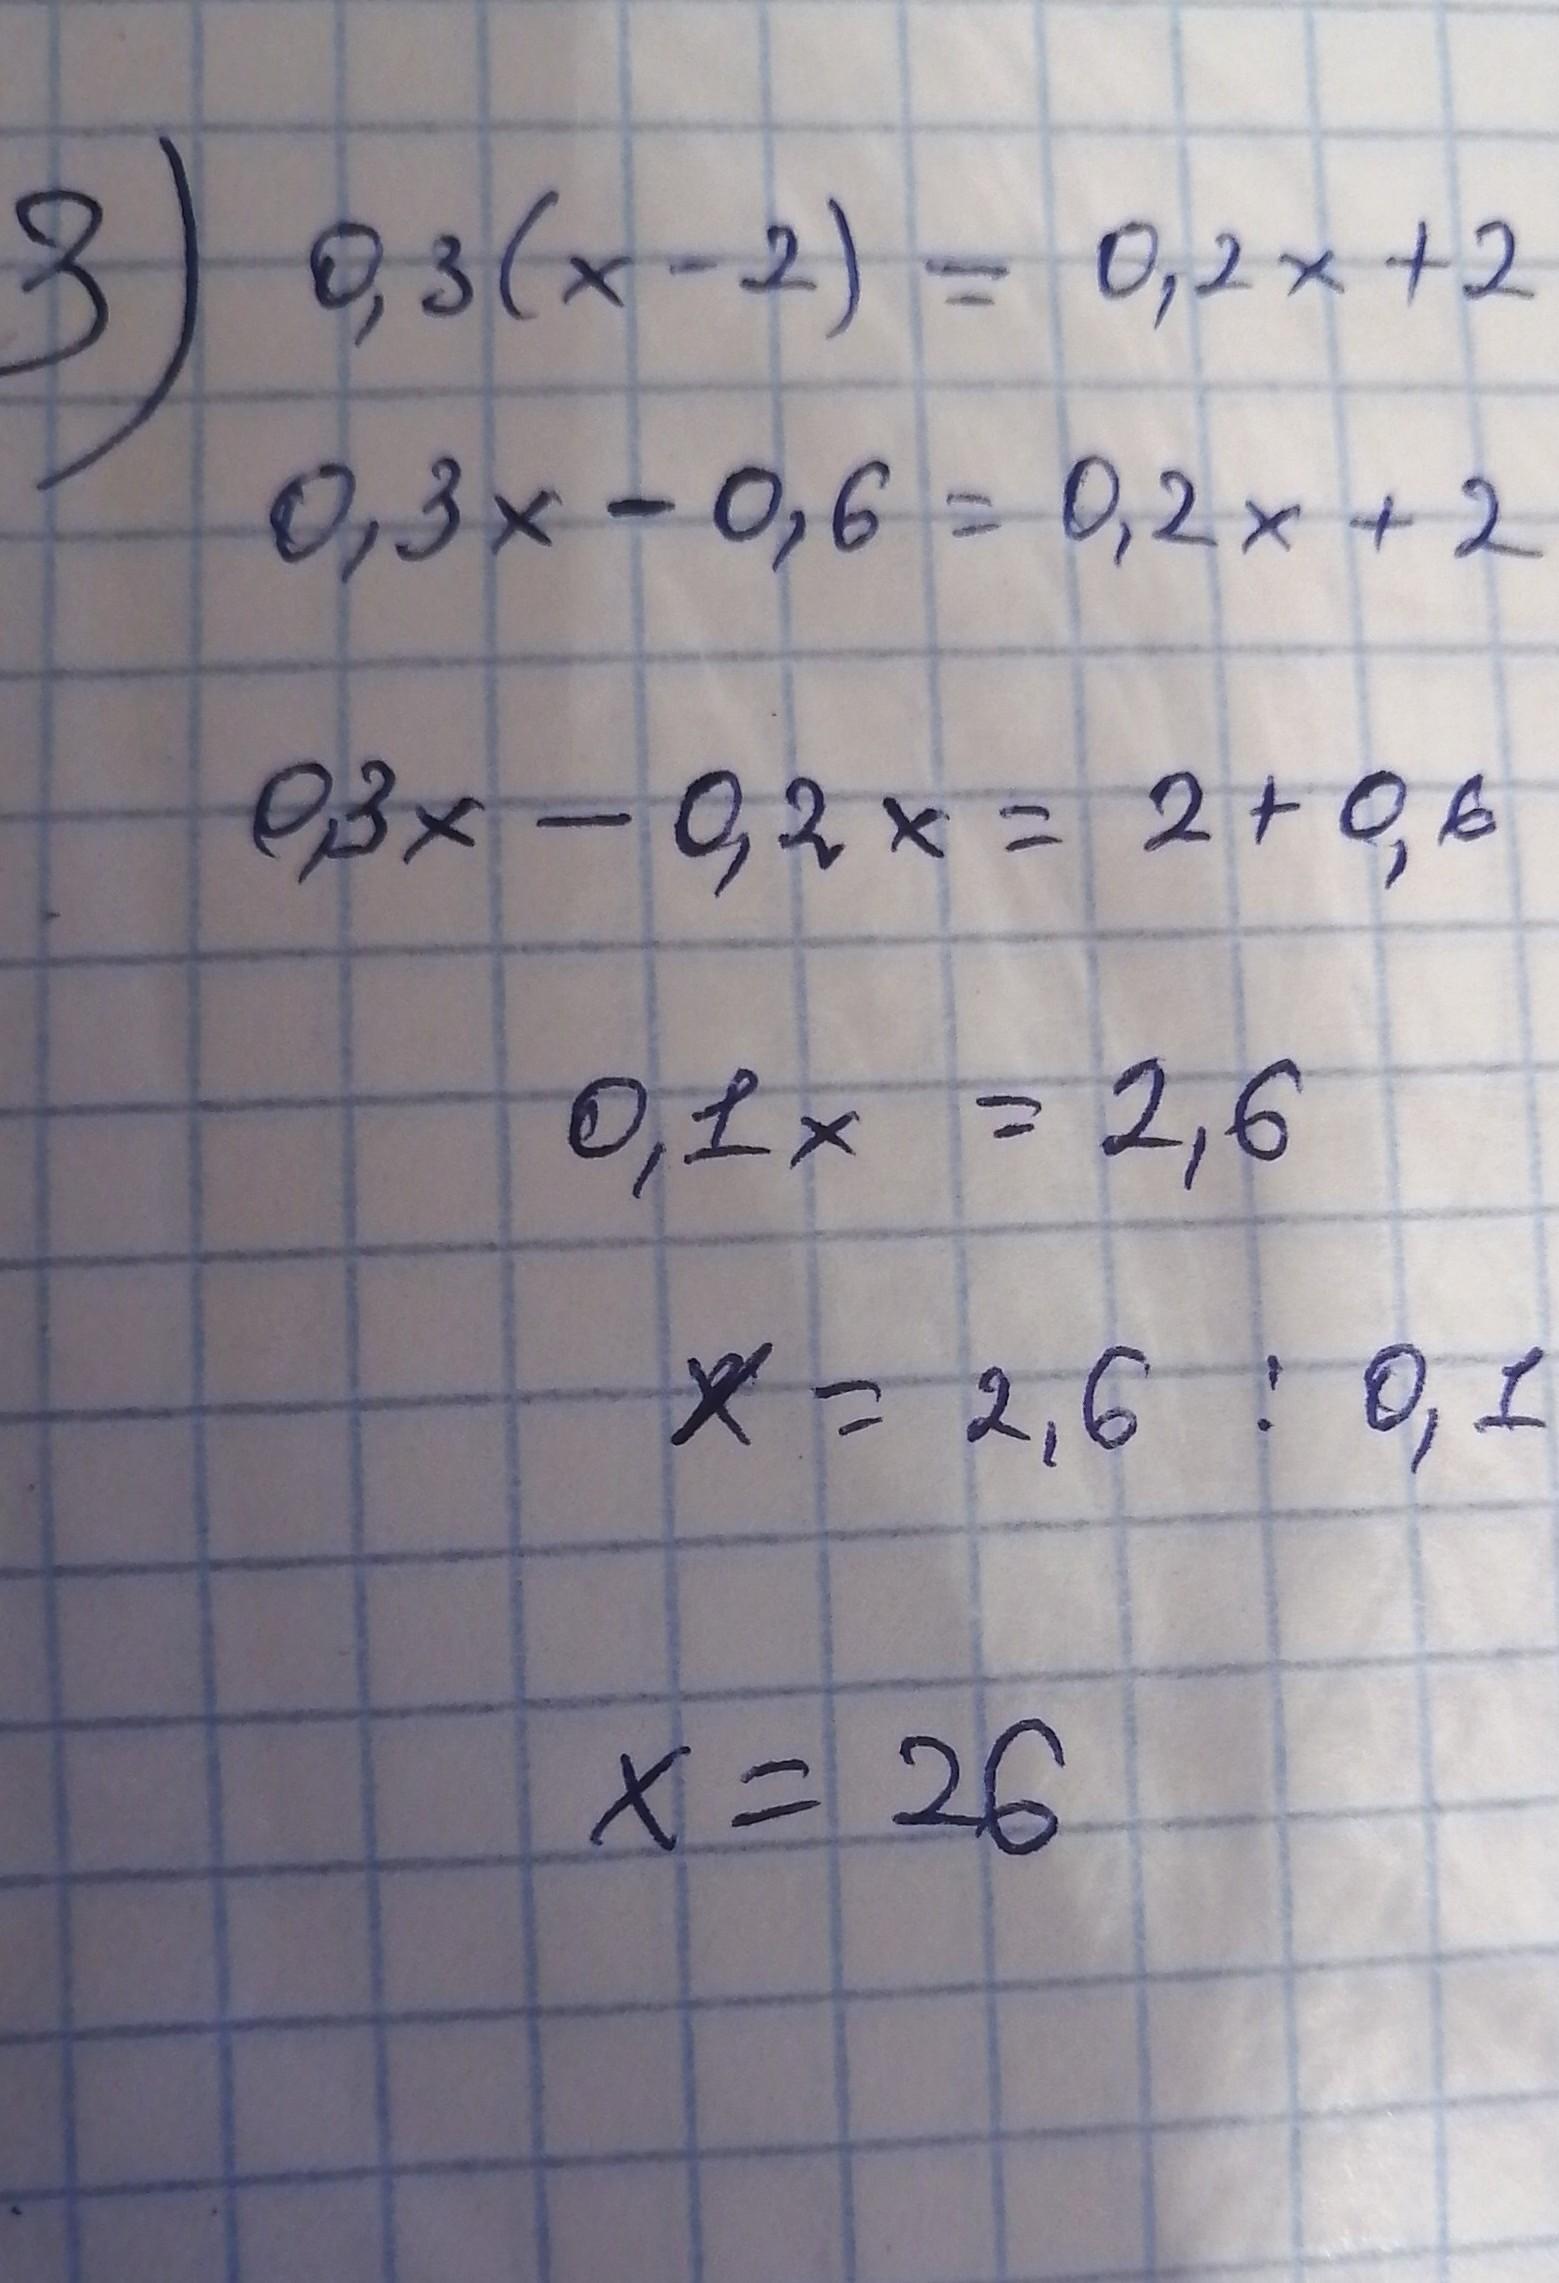 3) 0,3(x-2) = 0,2x+2
0,3x - 0,6 = 0,2x + 2
0,3x - 0,2x = 2 + 0,6
0,1x = 2,6
x = 2,6 : 0,1
x = 26